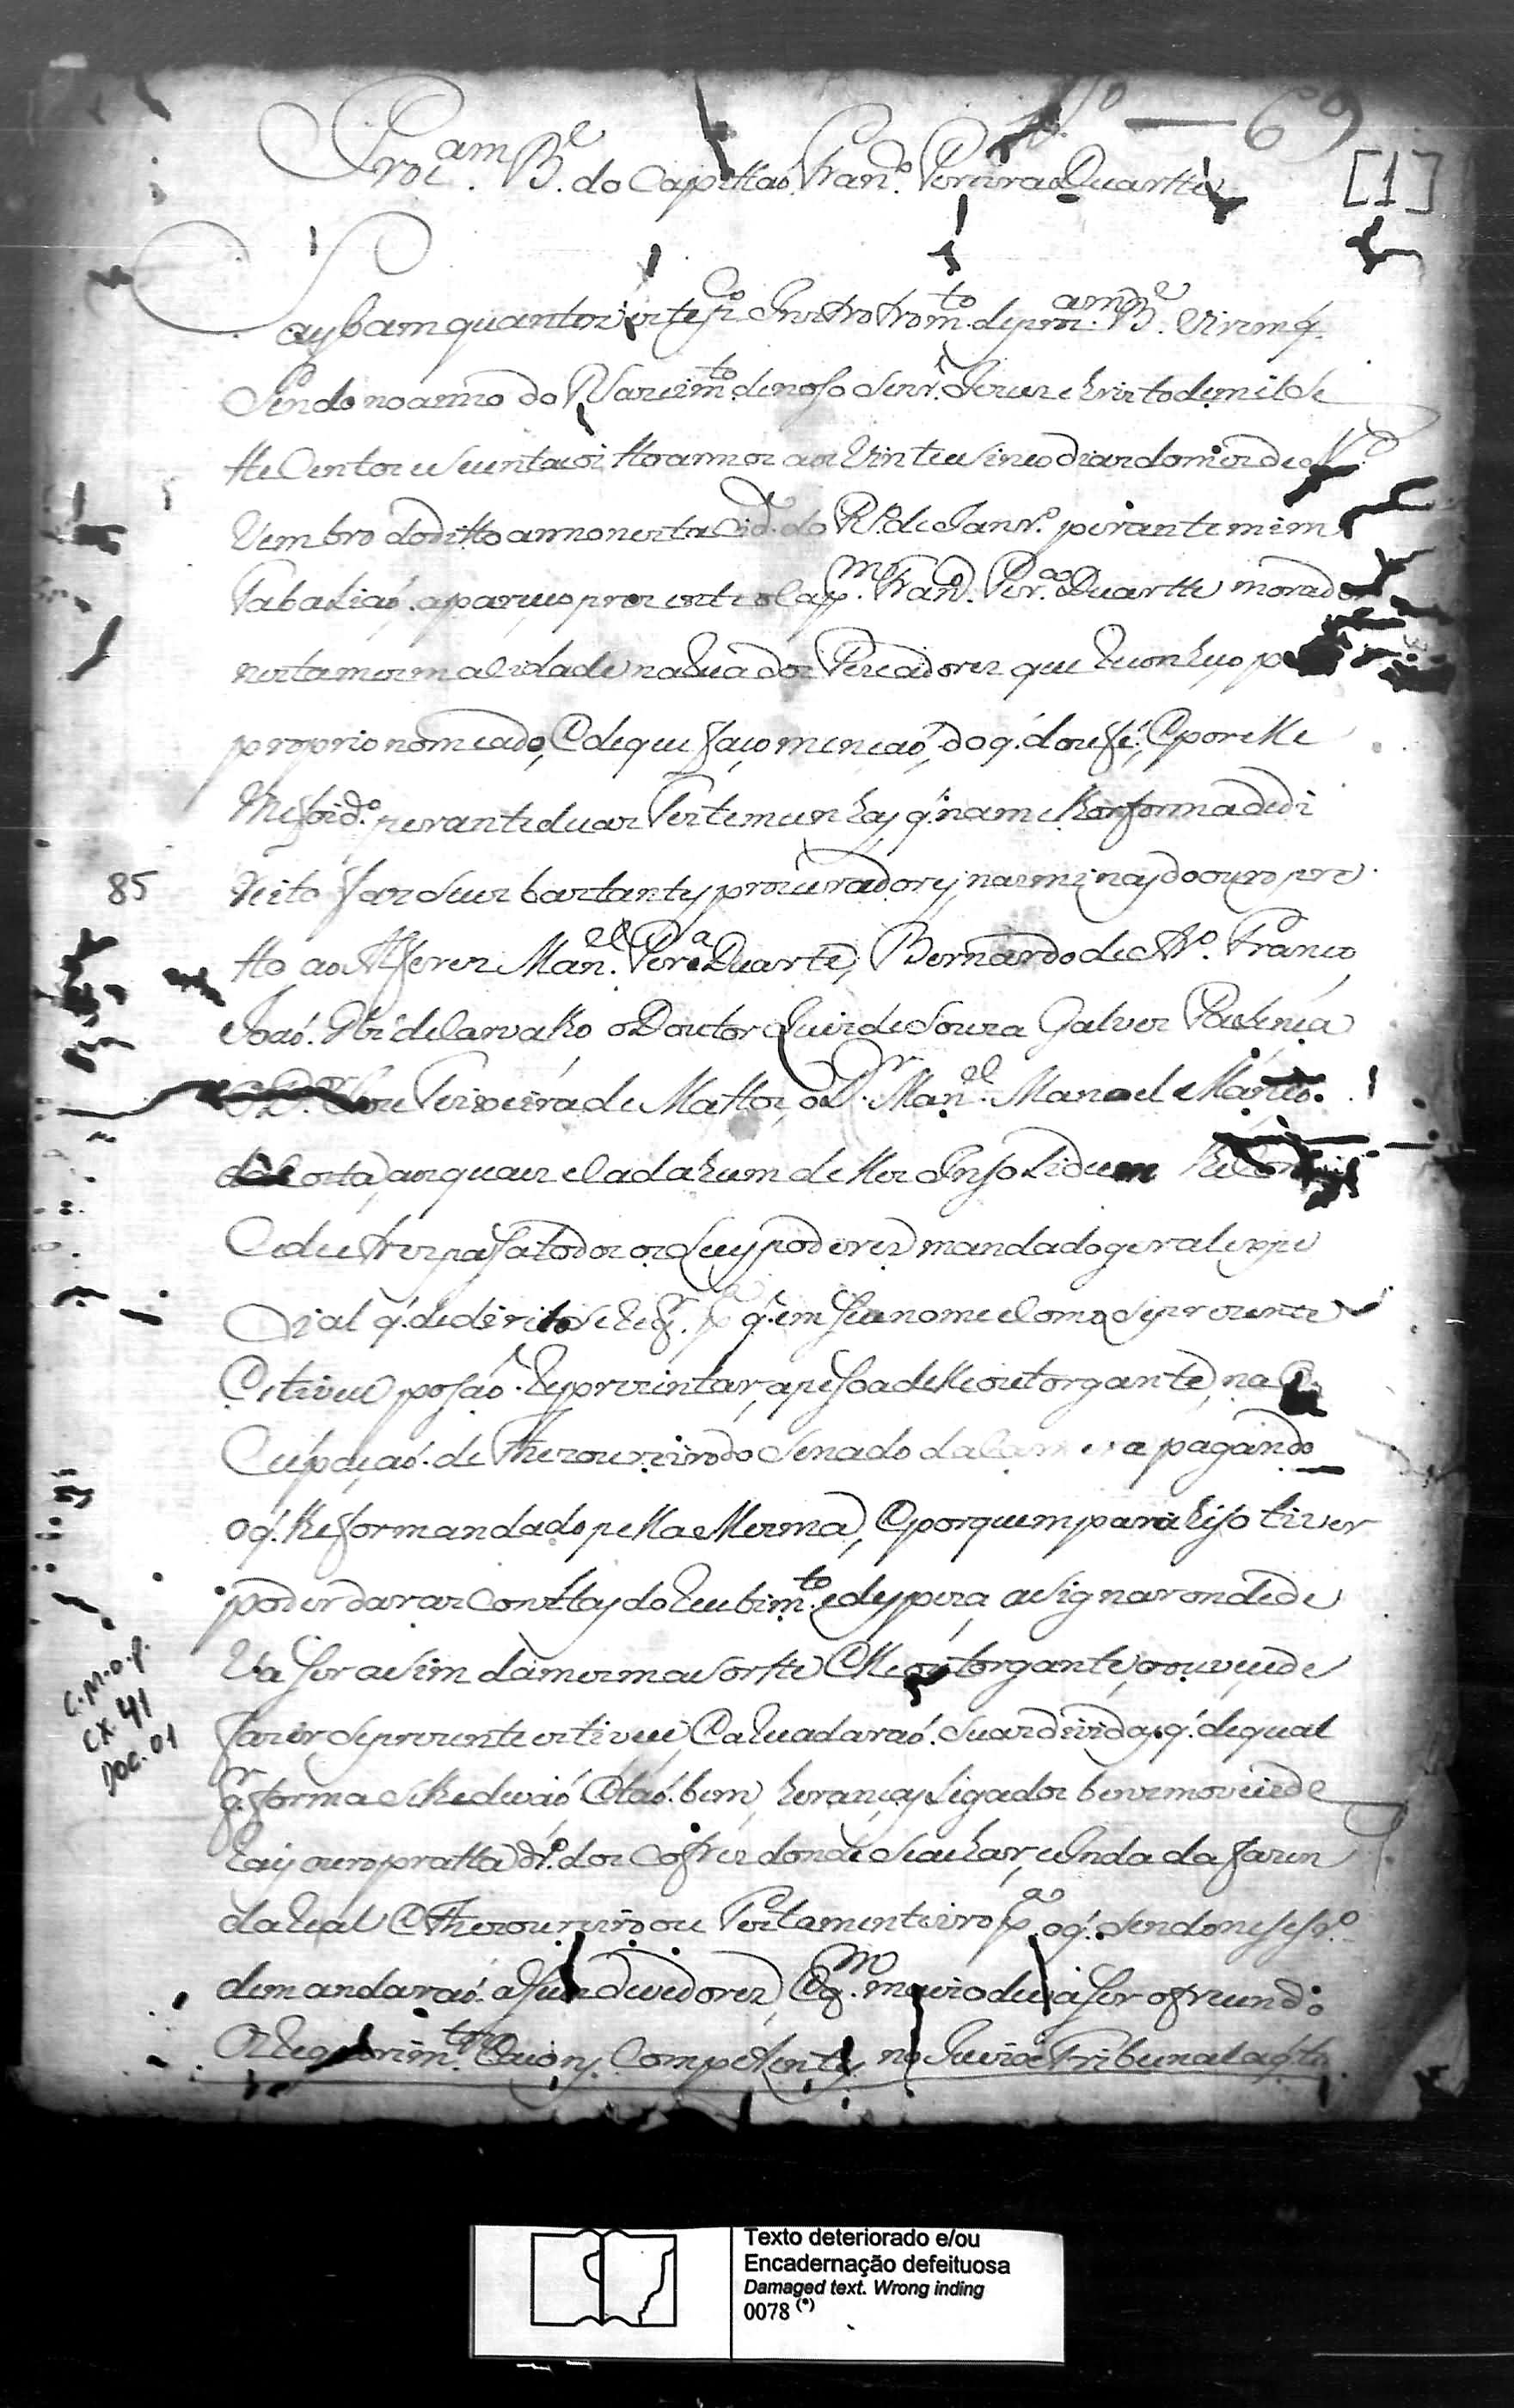 69
[1]
Procam. Be. do Capittaó Frano. Pereira Duartte
Saybam quantos este pco. Instrotromto. de procam. Be. Virem q.
Sendo no anno do Nascimto. de noso Senr. Jesus christo de mil Se
tte Centos e secenta oi tto annos aos Vinte e Sinco dias do mes de No
Vembro do ditto anno nesta Cide. do Ro. de Janro. perante mim
Tabaliaó apareceo prezente o Capm. Frano. Pera. Duartte morador
nesta mesma Cidade na Rua dos Pescadores que Reconheço p
proprio nomeado, e de que faço mencaó, do q. dou fé, e por elle
me foi do. perante duas Testemunhas q. na melhor forma de di
reito faz Seus bastantes procuradores, nas minas do ouro pre
tto ao Alferes Manel. Pera. Duarte, Bernardo de Aro. Franco
Joaó de Carvalho o Doutor Luis de Souza Galves
O Dr. Teixeira de Mattos, o Dr. Manel. Manoel
da Costa, aos quais e Cada hum delles Insolidum
Cede e trespasa todos os Seus poderes mandado geral e espe
Cial q. de direito se Req. pa. q. em Seu nome Como Se prezente
Estivece posaó Reprezentar, a pesoa delle outorgante, na
Cupaçaó de Thezoureiro do Senado da Camera pagando
o q. lhe for mandado pella Mesma, e por quem para hiso tiver
poder dar as Contas do Recebimto. e despeza, asignar onde de
Va Ser asim da mesma Sorte Elle outorgante, o ouvece de
fazer Se prezente estivece, e a Recadaraó Suas dividas, q. de qual
qr. forma Se lhe devaó, e taó bem, heranças Ligados bens moveis de
Rais ouro pratta dro. dos Cofres donde Se achar, e Inda da fazen
da Real e Thezoureiro ou Testamenteiro pa. o q. Sendo neseSro.
demandaraó a Seus devedores, e qm. mais deva Ser ofrecendo
Requerimtos. Acions Competentes no Juizo e Tribunal a q. to
85
C.M.O.P.
CX. 41
DOC. 01
Texto deteriorado e/ou
Encadernação defeituosa
Damaged text. Wrong inding
0078 (*)